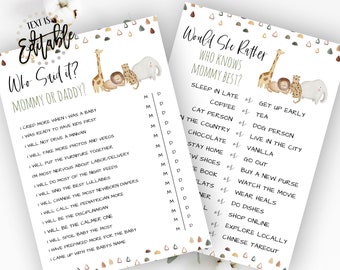 TEXT IS
Editable
Who Said it?
MOMMY OR DADDY?
I CRIED MORE WHEN I WAS A BABY M D
I WAS READY TO HAVE KIDS FIRST M D
I WILL NOT DRIVE A MINIVAN M D
I WILL TAKE MORE PHOTOS AND VIDEOS M D
I WILL PUT THE FURNITURE TOGETHER M D
I'M MOST NERVOUS ABOUT LABOR/DELIVERY M D
I WILL DO MOST OF THE NIGHT FEEDS M D
I WILL SING THE BEST LULLABIES M D
I WILL CHANGE THE MOST NEWBORN DIAPERS M D
I WILL CALL THE PEDIATRICIAN MORE M D
I WILL BE THE DISCIPLINARIAN M D
I WILL BE THE CALMER ONE M D
I WILL SPOIL BABY THE MOST M D
I HAVE PREPARED MORE FOR THE BABY M D
I CAME UP WITH THE BABY'S NAME M D
Would She Rather
WHO KNOWS
MOMMY BEST?
SLEEP IN LATE or GET UP EARLY
COFFEE or TEA
CAT PERSON or DOG PERSON
THE COUNTRY or LIVE IN THE CITY
CHOCOLATE or VANILLA
STAY HOME or GO OUT
NEW SHOES or BUY A NEW PURSE
THE BOOK or WATCH THE MOVIE
or WEAR HEALS
or DO DISHES
or SHOP ONLINE
or EXPLORE LOCALLY
or CHINESE TAKEOUT